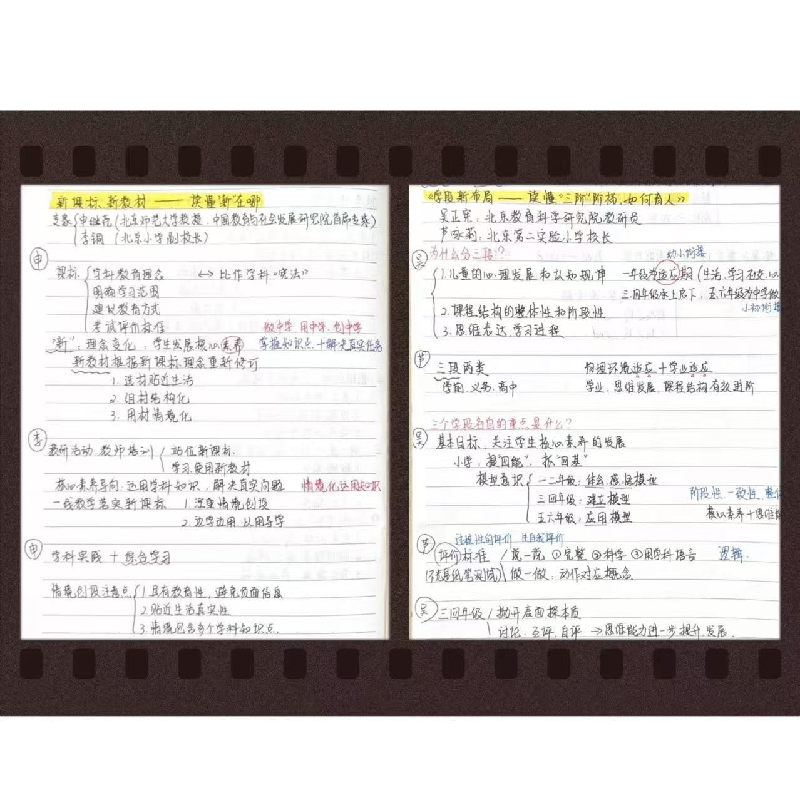 新课标、新教材 —— 读懂"新"在哪
专家 申继亮（北京师范大学教授 中国教育与社会发展研究院首席专家）
李钢（北京小学副校长）
申
课标 学科教育理念 ↔ 比作学科"宪法"
明确学习范围
建议教育方式
考试评价标准 做中学、用中学、创中学
"新"：理念变化，学生发展核心素养 掌握知识点+解决真实任务
新教材根据新课标理念重新修订
1. 选材贴近生活
2. 组材结构化
3. 用材情境化
李
教研活动、教师培训 站位新课标
学习、使用新教材
核心素养导向：运用学科知识，解决真实问题 情境化运用知识
一线教学落实新课标 1. 深度情境创设
2. 边学边用，以用导学
申
学科实践 + 综合学习
情境创设注意点 1. 具有教育性，避免负面信息
2. 贴近生活真实性
3. 情境包含多个学科知识点.
《学段新布局 —— 读懂"三阶"阶梯，如何育人》
吴正宪：北京教育科学研究院教研员
芦咏莉：北京第二实验小学校长
吴
为什么分三段？ 幼小衔接
1. 儿童的心理发展和认知规律 一年级为适应期（生活、学习、社交、心
三四年级承上启下，五六年级为中学做
小初衔接
2. 课程结构的整体性和阶段性
3. 思维表达学习过程
芦
三段两类 物理环境适应+学业适应
学前、义务、高中 学业、思维发展、课程结构有效进阶
三个学段各自的重点是什么？
吴
基本目标，关注学生核心素养的发展
模型意识 一二年级：
三四年级：建立模型 阶段性、一致性、整体
五六年级：应用模型 核心素养+思维
芦
过程性的评价 生自我评价
评价标准 说一说 ①完整 ②科学 ③用学科语言 逻辑.
做一做：动作对应概念
吴
三四年级 抛开表面探本质
讨论、互评、自评 → 思维能力进一步提升、发展.